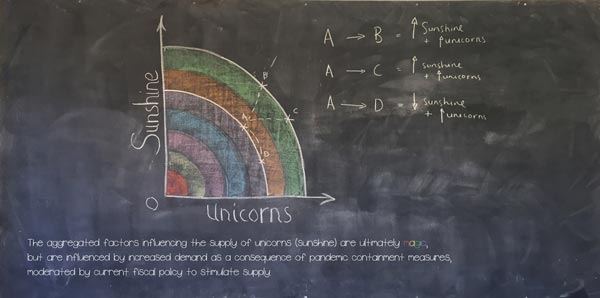 A → B = ↑ Sunshine
+ ↑unicorns
A → C = ↑ sunshine
+ ↑unicorns
A → D = ↓ sunshine
+ ↑unicorns
Sunshine
B
A
C
D
O
Unicorns
The aggregated factors influencing the supply of unicorns (sunshine) are ultimately magic,
but are influenced by increased demand as a consequence of pandemic containment measures,
moderated by current fiscal policy to stimulate supply